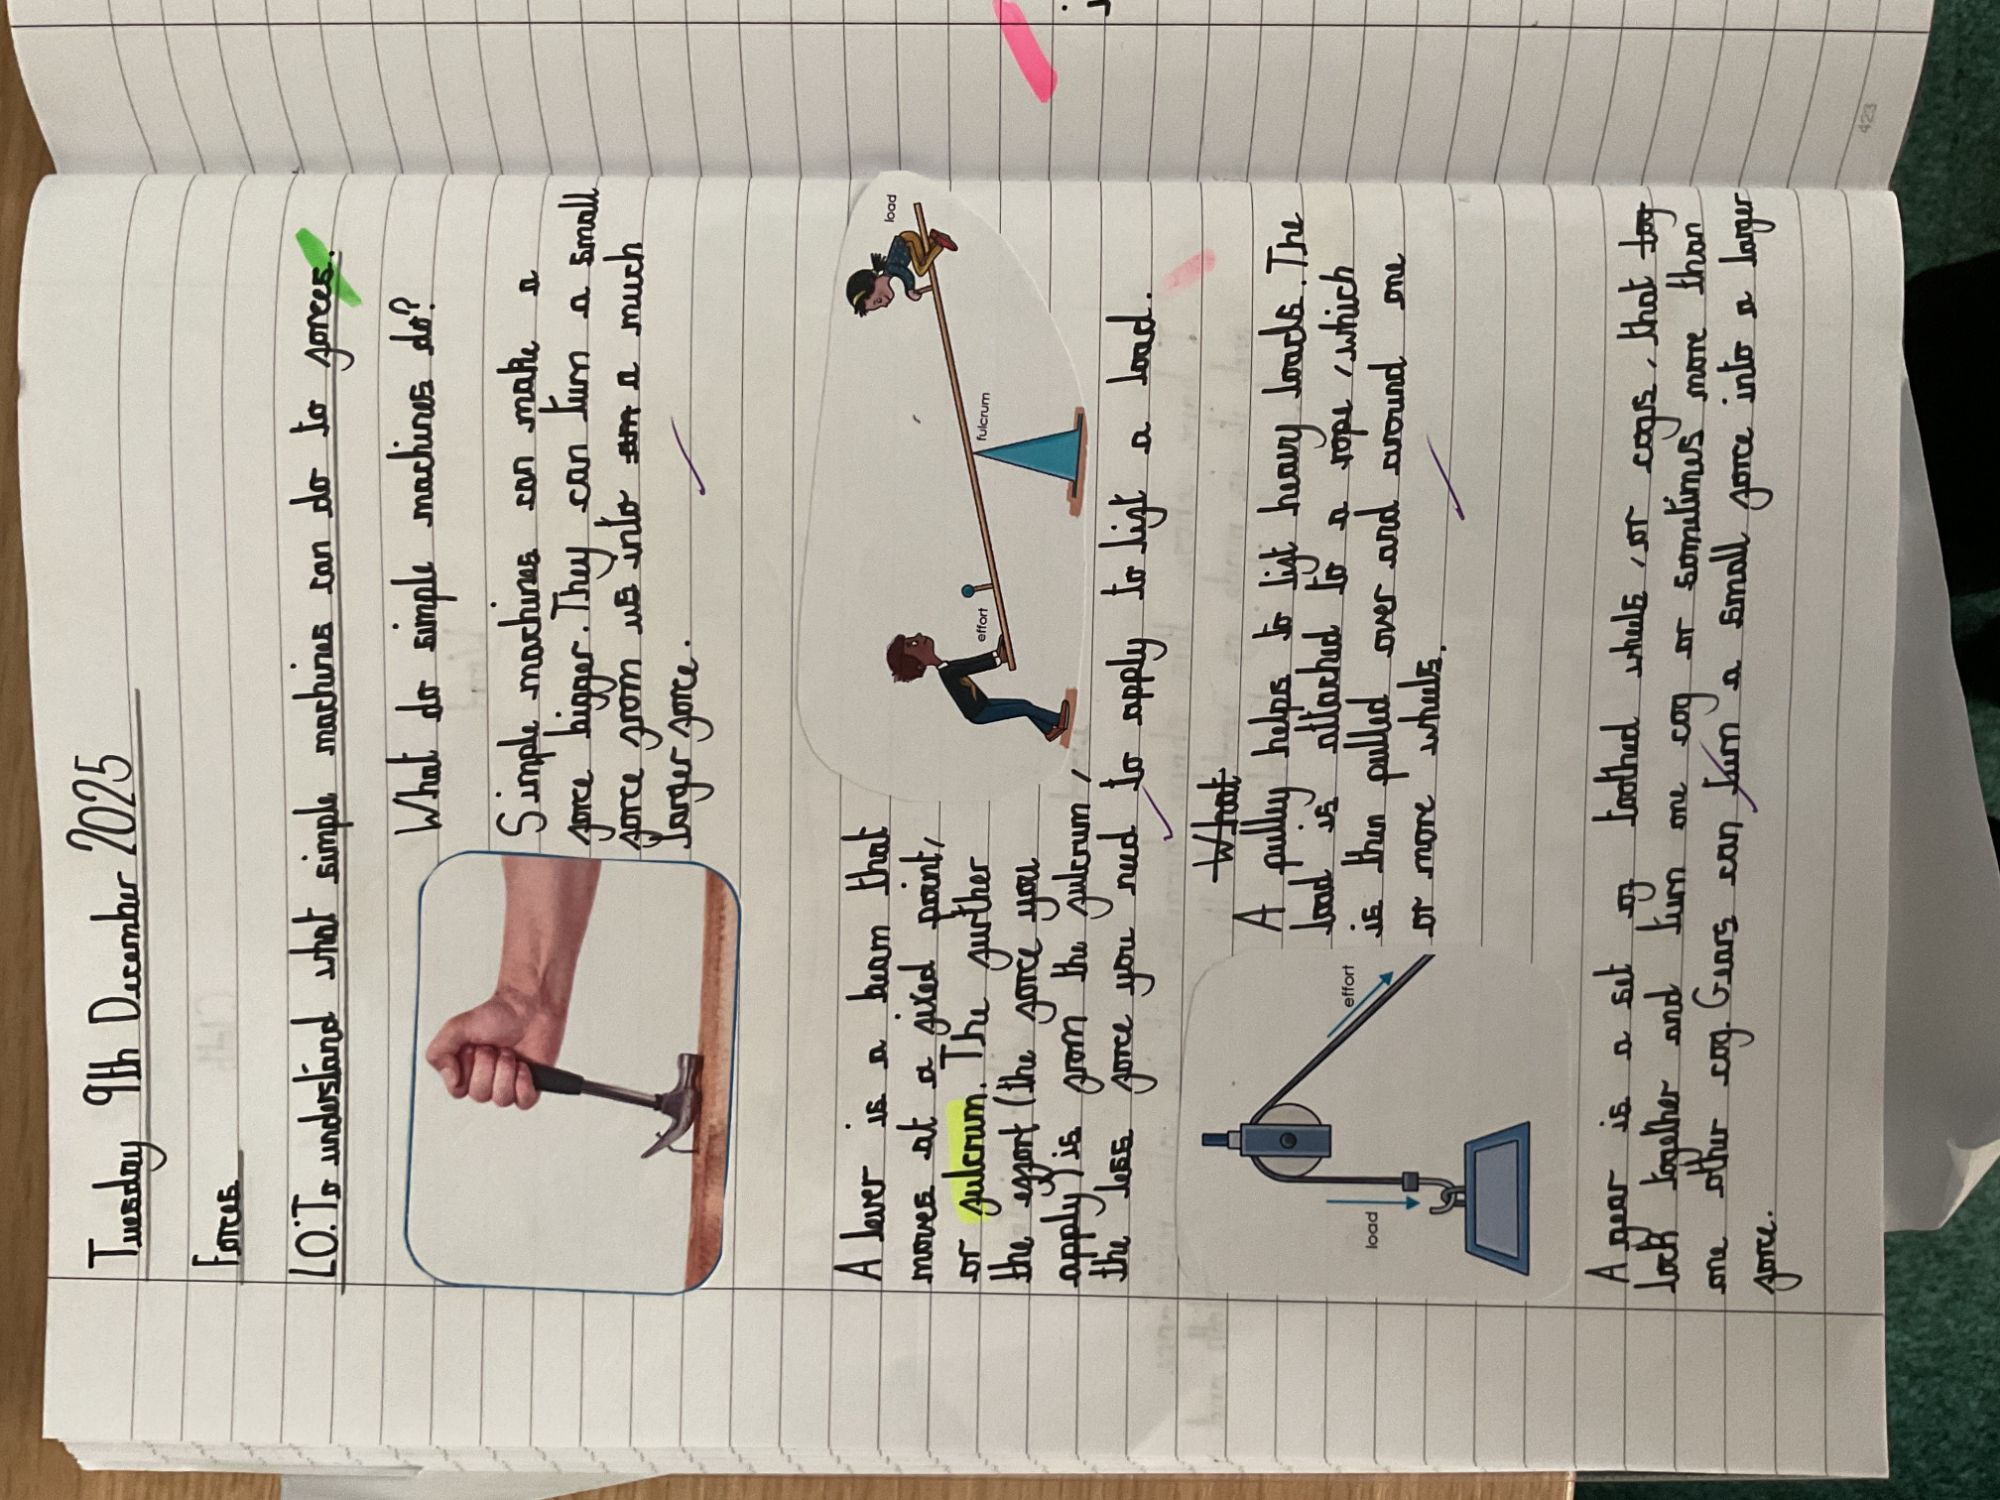 Tuesday 9th December 2025
Forces
L.O: To understand what simple machines can do to forces.
What do simple machines do?
Simple machines can make a
force bigger. They can turn a small
force from us into sm a much
larger force.
A lever is a beam that
moves at a fixed point,
or fulcrum. The further
the effort (the force you
apply) is from the fulcrum,
the less force you need to apply to lift a load.
effort
fulcrum
load
What
A pully helps to lift heavy loads. The
load is attached to a rope, which
is then pulled over and around one
or more wheels.
load
effort
A gear is a set of toothed wheels, or cogs, that tog
lock together and turn one cog or sometimes more than
one other cog. Gears can turn a small force into a larger
force.
423